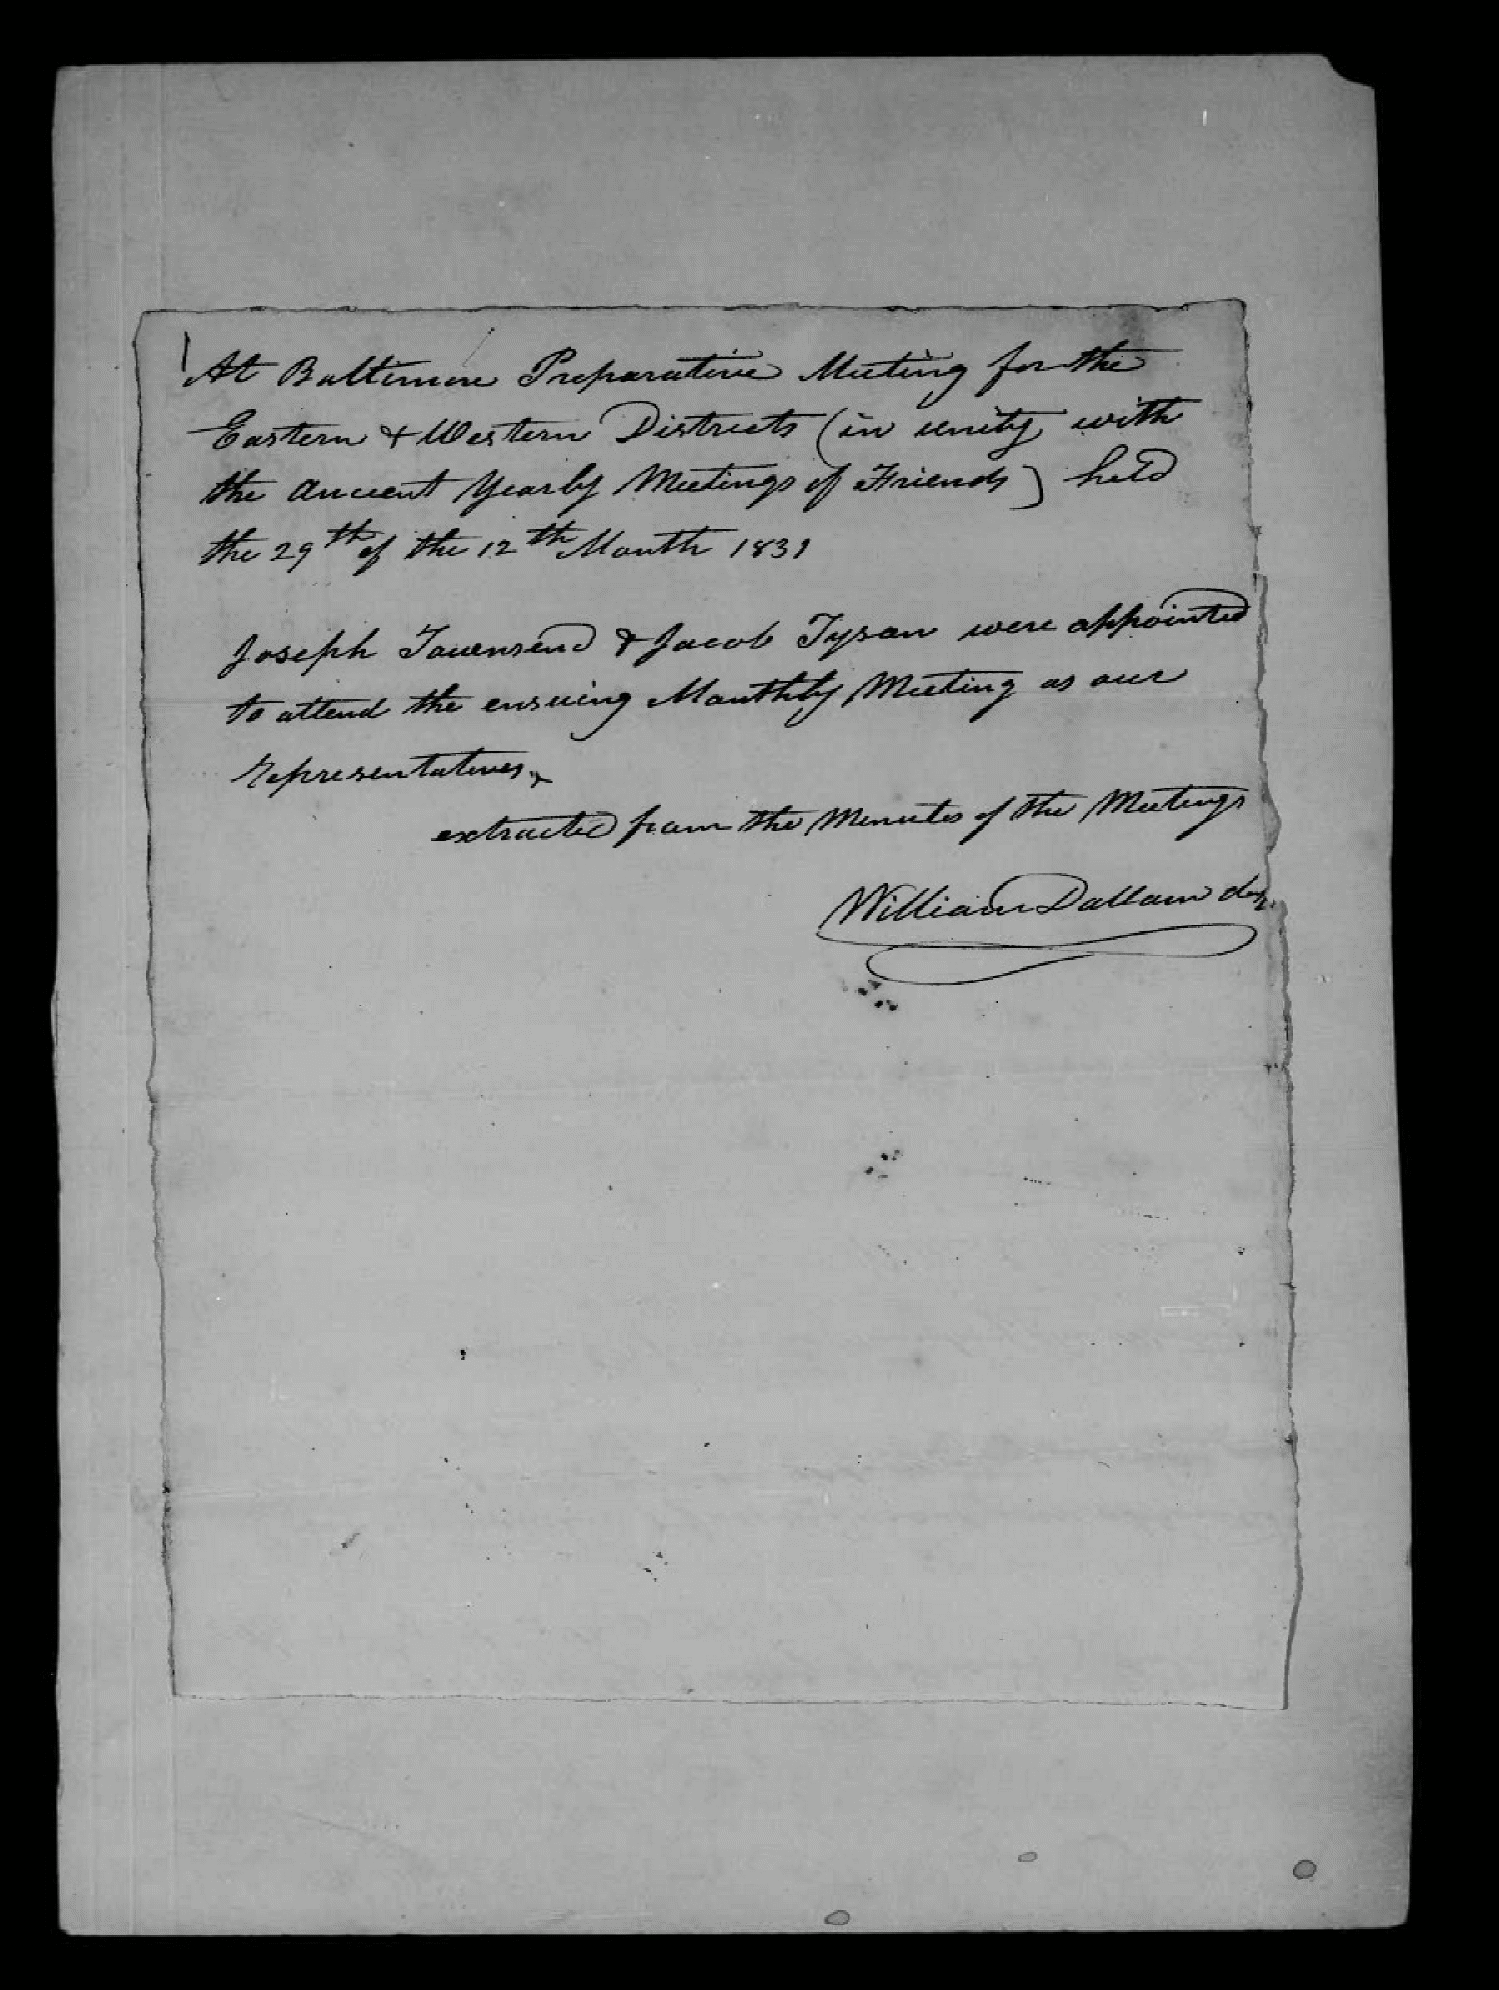 At Baltimore Preparative Meeting for the
Eastern & Western Districts (in unity with
the Ancient Yearly Meetings of Friends) held
the 29th of the 12th Month 1831
Joseph Townsend & Jacob Tyson were appointed
to attend the ensuing Monthly Meeting as our
representatives,
extracted from the Minutes of the Meetings
William Dallam